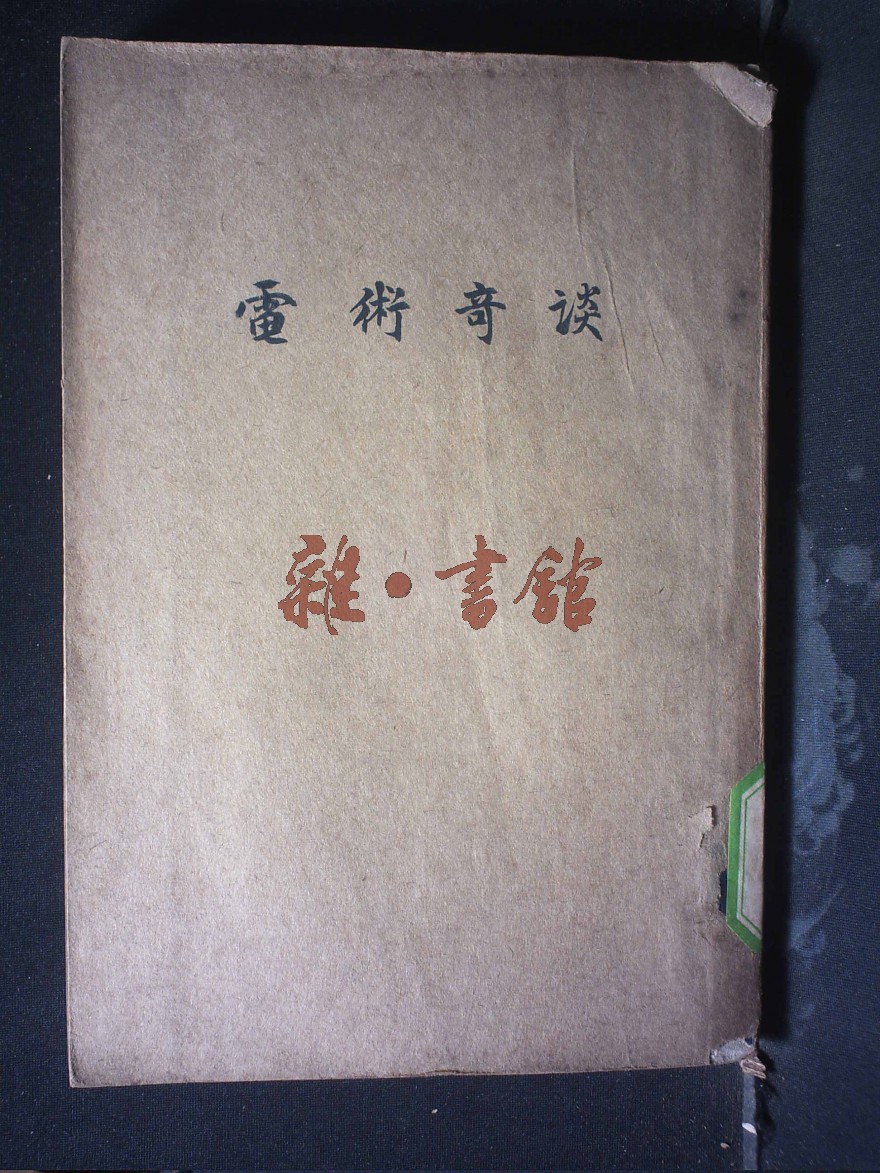 電術奇談
雜·書館